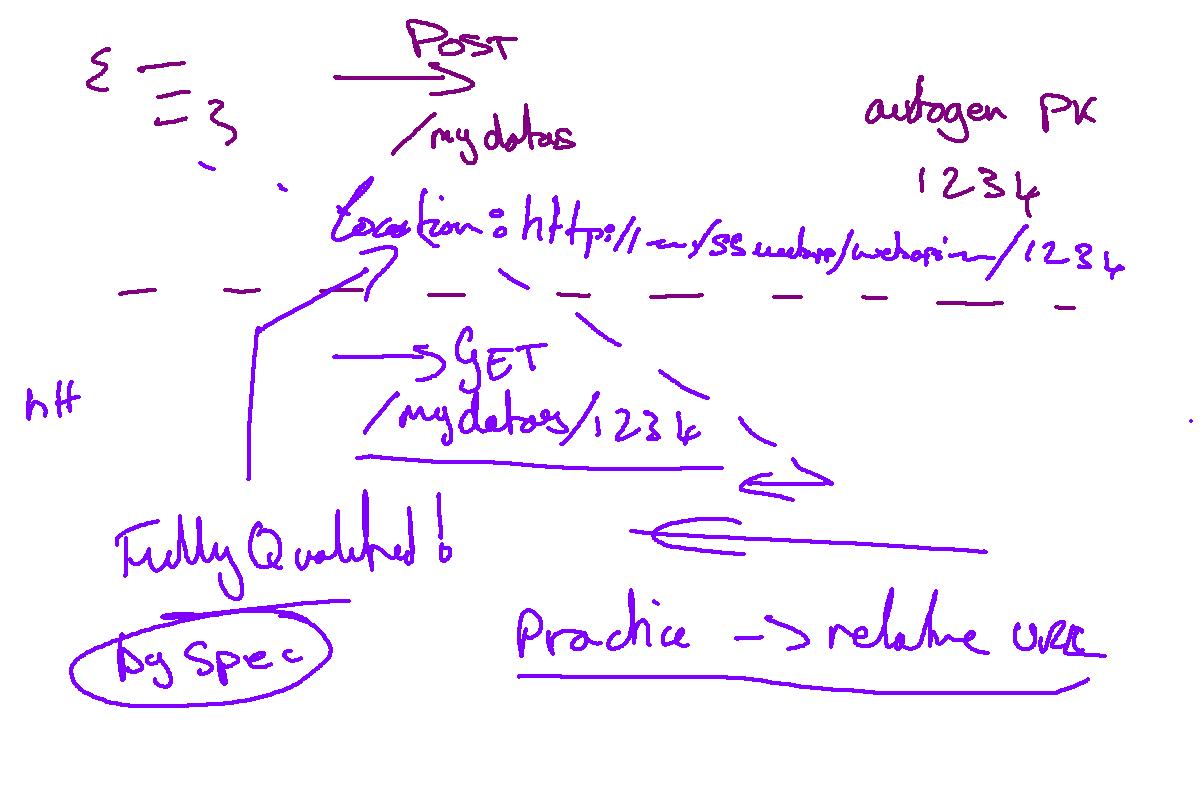 { }
POST
/mydatas
autogen PK
1234
Location: http://~/SSwebapp/webapi~/1234
GET
/mydatas/1234
htt
Fully Qualified!
By Spec
Practice -> relative URL